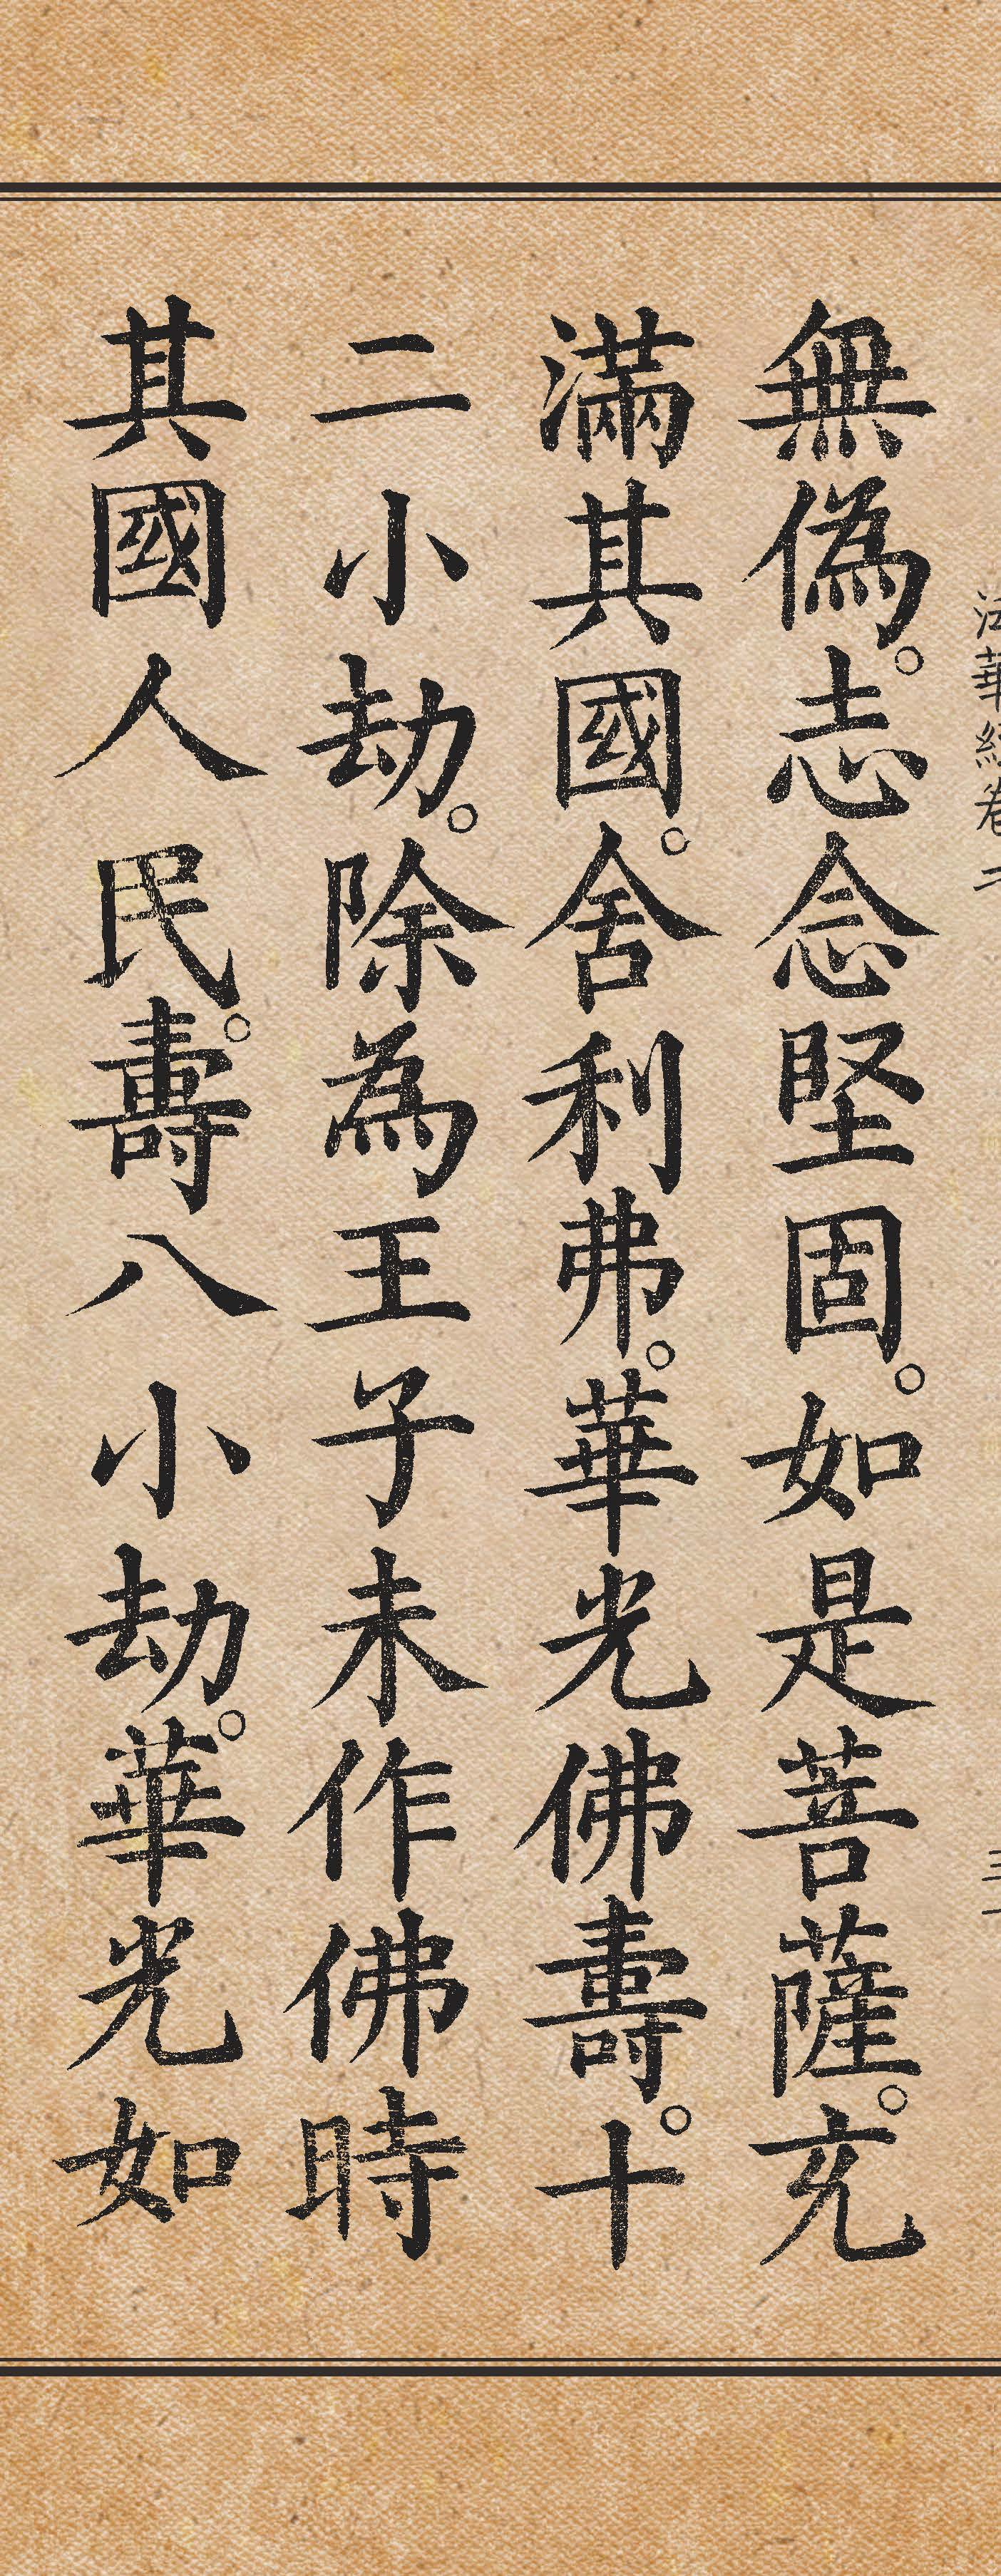 法華經卷二
無偽。志念堅固。如是菩薩。充
滿其國。舍利弗。華光佛壽。十
二小劫。除為王子未作佛時
其國人民。壽八小劫。華光如